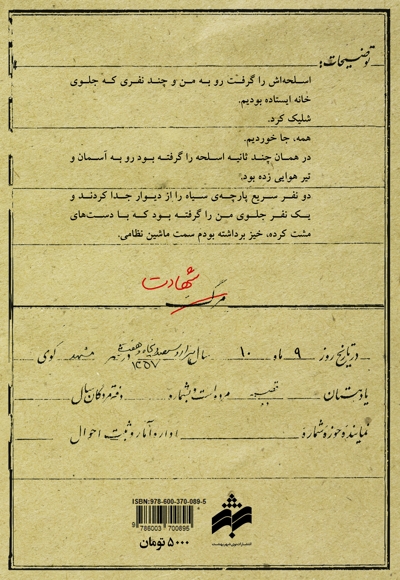 توضیحات:
اسلحه‌اش را گرفت رو به من و چند نفری که جلوی
خانه ایستاده بودیم.
شلیک کرد.
همه، جا خوردیم.
در همان چند ثانیه اسلحه را گرفته بود رو به آسمان و
تیر هوایی زده بود.
دو نفر سریع پارچه‌ی سیاه را از دیوار جدا کردند و
یک نفر جلوی من را گرفته بود که با دست‌های
مشت کرده، خیز برداشته بودم سمت ماشین نظامی.
شهادت
مرگ
در تاریخ روز ۹ ماه ۱۰ سال هزار و سیصد و پنجاه و هفت ۱۳۵۷ در شهر مشهد کوی
یا دهستان قصبه مرده است و بشماره دفتر مردگان سال
نماینده حوزه شماره اداره آمار و ثبت احوال
ISBN: 978-600-370-089-5
9 786003 700895
۵۰۰۰ تومان